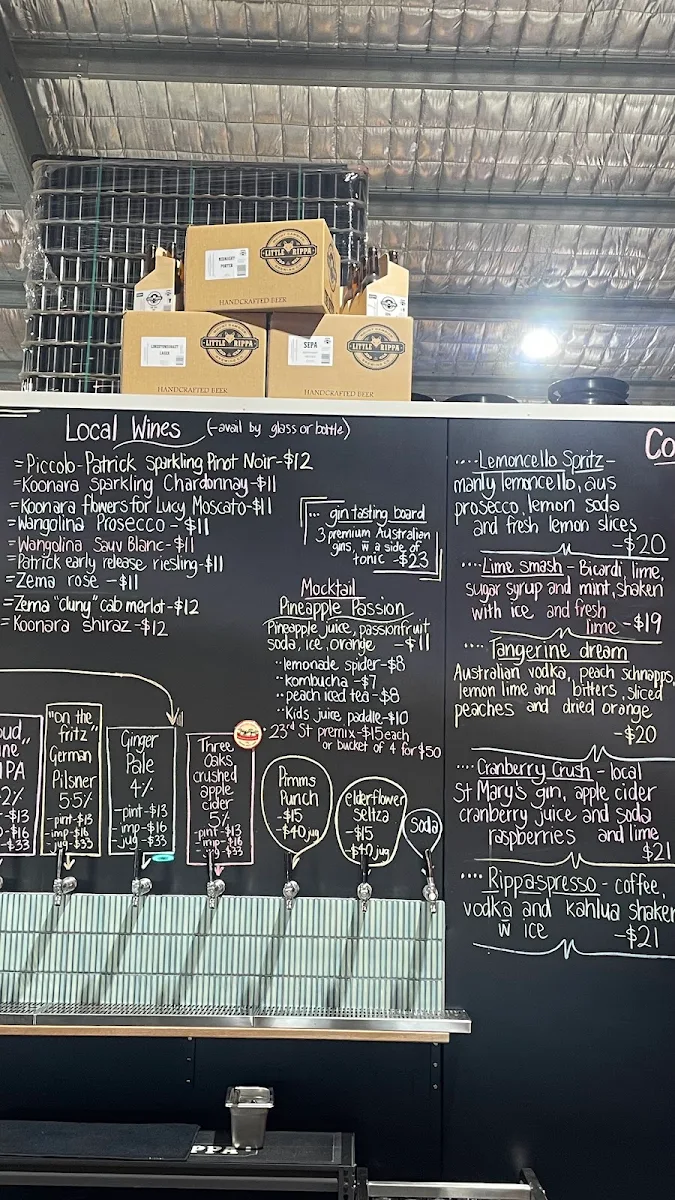 MIDNIGHT
PORTER
LITTLE RIPPA
HANDCRAFTED BEER
LAGER
LITTLE RIPPA
HANDCRAFTED BEER
SEPA
LITTLE RIPPA
HANDCRAFTED BEER
Local Wines (-avail by glass or bottle)
=Piccolo-Patrick sparkling Pinot Noir-$12
=Koonara sparkling Chardonnay-$11
=Koonara flowers for Lucy Moscato-$11
=Wangolina Prosecco-$11
=Wangolina Sauv Blanc-$11
=Patrick early release riesling-$11
=Zema rose -$11
=Zema "cluny" cab merlot-$12
=Koonara shiraz-$12
... gin tasting board
3 premium Australian
gins, w a side of
tonic -$23
Mocktail
Pineapple Passion
Pineapple juice, passionfruit
soda, ice, orange -$11
..lemonade spider-$8
..kombucha-$7
..peach iced tea-$8
..Kids juice paddle-$10
23rd St premix-$15 each
or bucket of 4 for $50
PA
2%
-$13
-$16
-$33
"on the
fritz"
German
Pilsner
5.5%
-pint-$13
-imp-$16
-jug-$33
Ginger
Pale
4%
-pint-$13
-imp-$16
-jug-$33
Three
Oaks
crushed
apple
cider
5%
-pint-$13
-imp-$16
-jug-$33
Pimms
Punch
-$15
-$40 jug
elderflower
seltza
-$15
-$40 jug
Soda
Co
....Lemoncello Spritz-
manly lemoncello, aus
prosecco, lemon soda
and fresh lemon slices
-$20
....Lime smash - Bicardi lime,
sugar syrup and mint, shaken
with ice and fresh
lime -$19
...Tangerine dream
Australian vodka, peach schnapps,
lemon lime and bitters, sliced
peaches and dried orange
-$20
....Cranberry Crush - local
St Mary's gin, apple cider
cranberry juice and soda
raspberries and lime
$21
....Rippaspresso - coffee,
vodka and kahlua shaken
w ice -$21
PPA